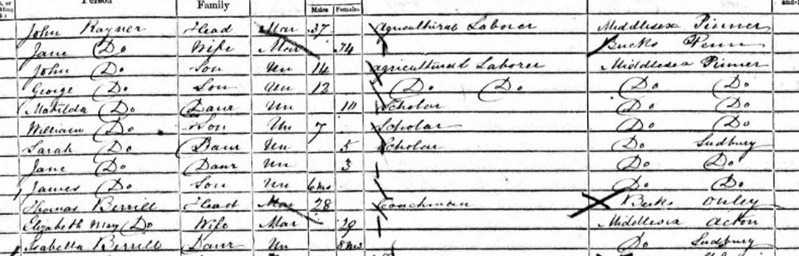 Person Family Males Females
John Rayner Head Mar 37 Agricultural Laborer Middlesex Pinner
Jane Do Wife Mar 34 Bucks Penn
John Do Son Un 14 agricultural Laborer Middlesex Pinner
George Do Son Un 12 Do Do Do Do
Matilda Do Daur Un 10 Scholar Do Do
William Do Son Un 7 Scholar Do Do
Sarah Do Daur Un 5 Scholar Do Sudbury
Jane Do Daur Un 3 Do Do
James Do Son Un 6 mo Do Do
Thomas Berrill Head Mar 28 Coachman Beds
Elizabeth May Do Wife Mar 29 Middlesex Acton
Isabella Berrill Daur Un 8 mo Do Sudbury